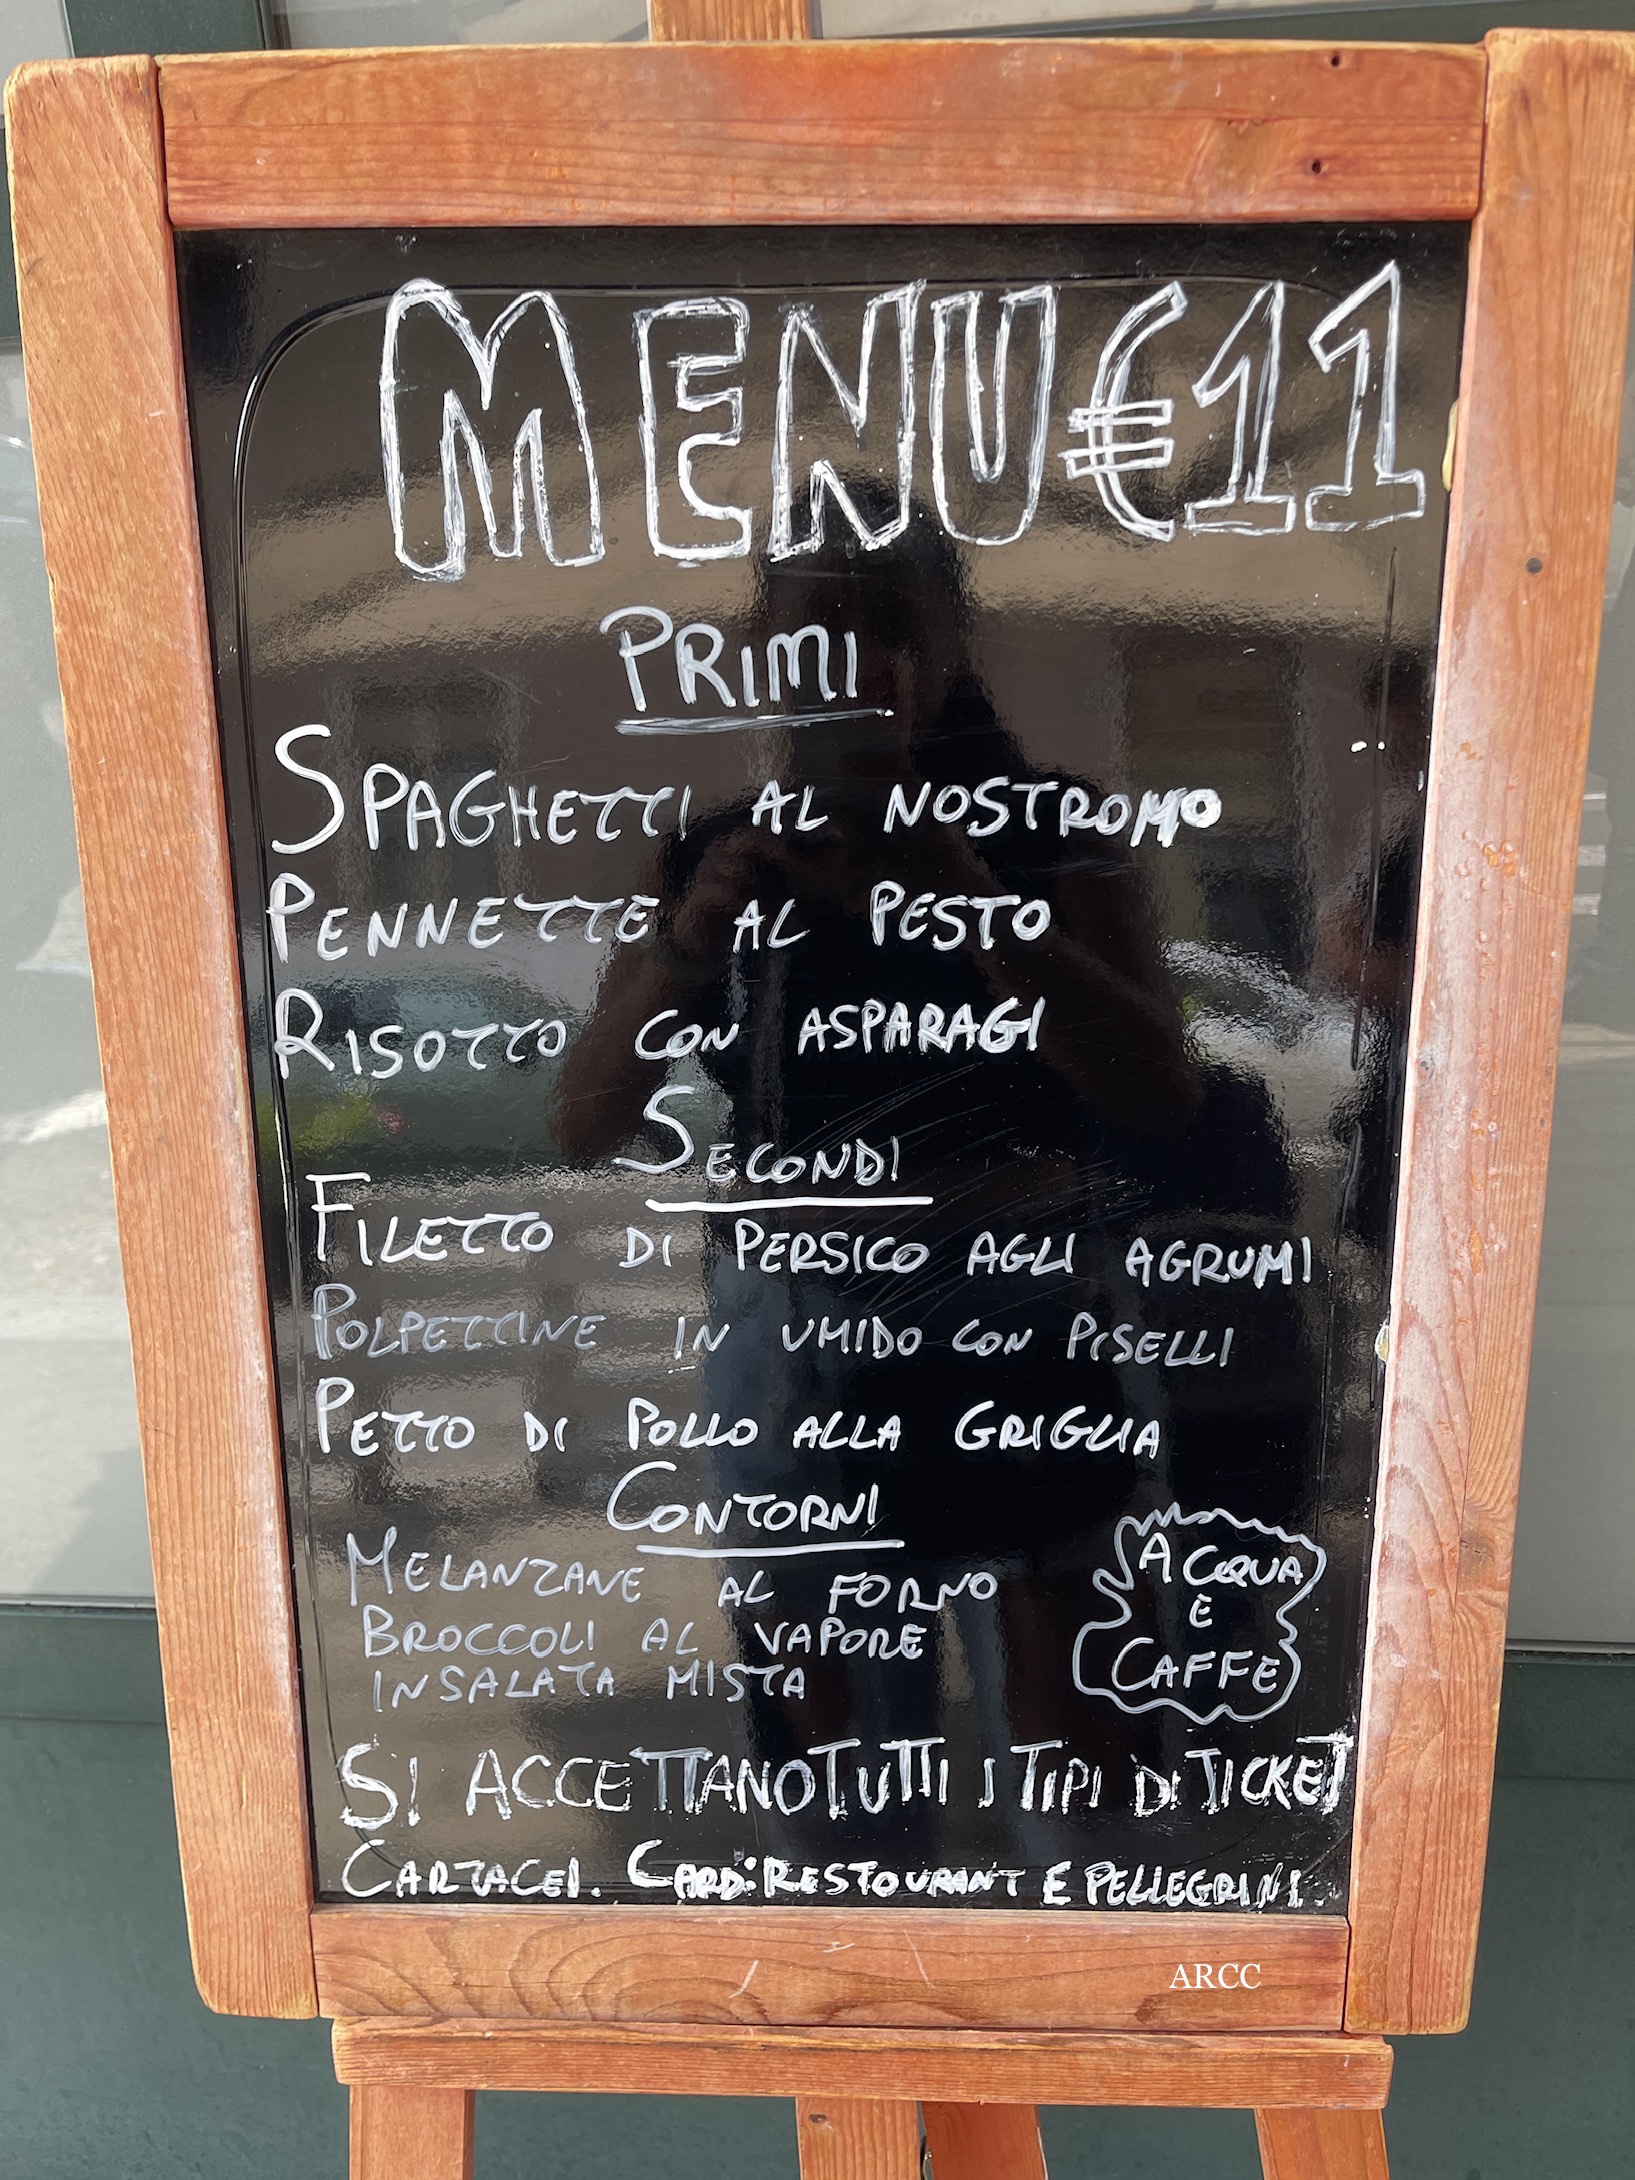 MENU €11
PRIMI
SPAGHETTI AL NOSTROMO
PENNETTE AL PESTO
RISOTTO CON ASPARAGI
SECONDI
FILETTO DI PERSICO AGLI AGRUMI
POLPETTINE IN UMIDO CON PISELLI
PETTO DI POLLO ALLA GRIGLIA
CONTORNI
MELANZANE AL FORNO
BROCCOLI AL VAPORE
INSALATA MISTA
ACQUA
E
CAFFE
SI ACCETTANO TUTTI I TIPI DI TICKET
CARTACEI. CARD: RESTOURANT E PELLEGRINI.
ARCC